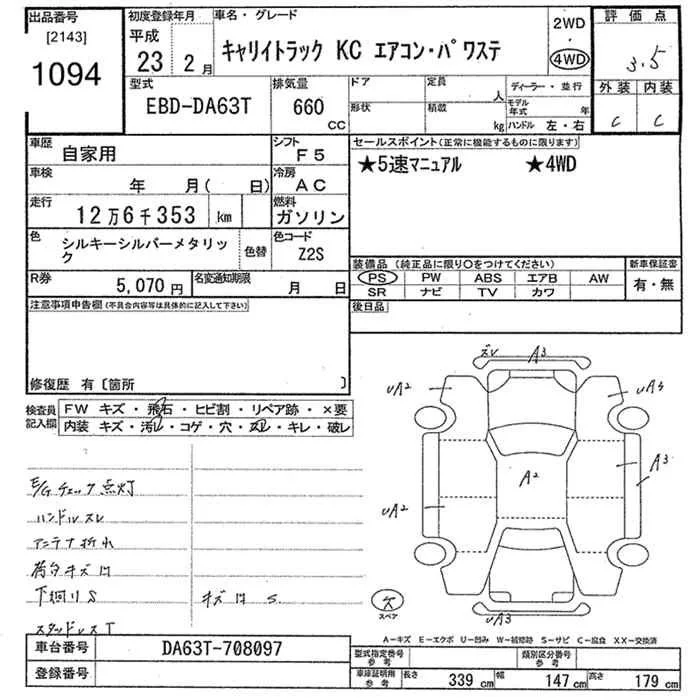 出品番号
[2143]
1094
初度登録年月
平成
23年 2月
車名・グレード
キャリイトラック KC エアコン・パワステ
2WD
・
4WD
評価点
3.5
外装 内装
C C
型式
EBD-DA63T
排気量
660
CC
ドア
形状
定員
人
積載
kg
ディーラー・並行
モデル年式 年
ハンドル 左・右
車歴
自家用
シフト
F5
車検
年 月( 日)
冷房
AC
走行
12万6千353 km
燃料
ガソリン
色
シルキーシルバーメタリック
色替
色コード
Z2S
R券
5,070円
名変通知期限
月 日
セールスポイント(正常に機能するものに限ります)
★5速マニュアル ★4WD
装備品(純正品に限り○をつけてください)
PS PW ABS エアB AW
SR ナビ TV カワ
新車保証書
有・無
後日品
注意事項申告欄(不具合内容等は具体的に記入して下さい)
修復歴 有〔箇所 〕
検査員記入欄
FW キズ・飛石・ヒビ割・リペア跡・×要
内装 キズ・汚レ・コゲ・穴・スレ・キレ・破レ
E/Gチェック点灯
ハンドルスレ
アンテナ折れ
荷台キズ凹
下回りS
キズ凹 S
スタッドレスT
ズレ A3
UA2
A3
A2
A3
UA2
スペア
A-キズ E-エクボ U-凹み W-補修跡 S-サビ C-腐食 XX-交換済
車台番号
DA63T-708097
登録番号
型式指定番号 参考
類別区分番号 参考
車庫証明用 参考
長さ 339cm 幅 147cm 高さ 179cm